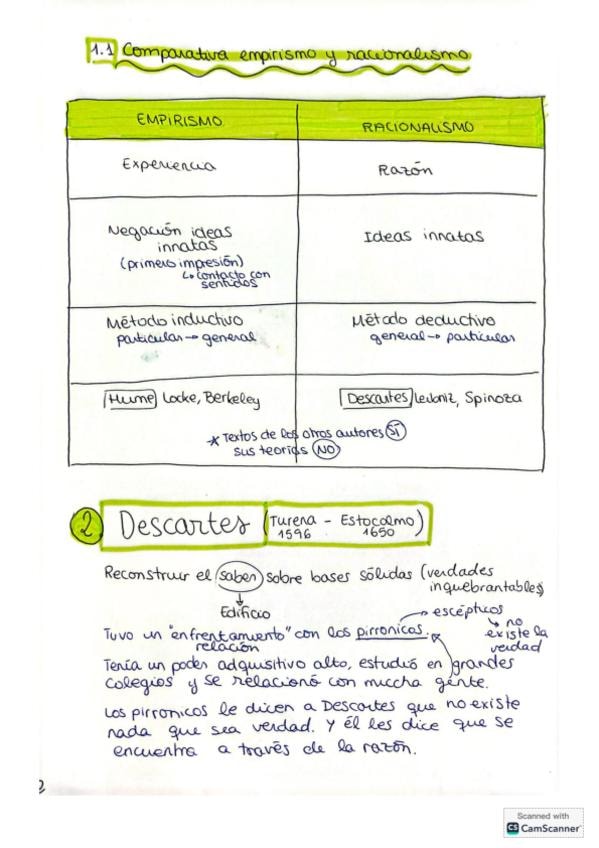 1.1 Comparativa empirismo y racionalismo
EMPIRISMO
RACIONALISMO
Experiencia
Razón
Negación ideas
innatas
(primero impresión)
↳ contacto con
sentidos
Ideas innatas
Método inductivo
particular → general
Método deductivo
general → particular
Hume, Locke, Berkeley
Descartes, Leibniz, Spinoza
* Textos de los otros autores SÍ
sus teorías NO
2 Descartes (Turena - Estocolmo)
1596 1650
Reconstruir el saber sobre bases sólidas (verdades
inquebrantables)
Edificio
→ escépticos
↳ no
existe la
verdad
Tuvo un "enfrentamiento" con los pirronicos.
relación
Tenía un poder adquisitivo alto, estudió en grandes
colegios y se relacionó con muccha gente.
Los pirronicos le dicen a Descartes que no existe
nada que sea verdad. Y él les dice que se
encuentra a través de la razón.
2
Scanned with
CS CamScanner